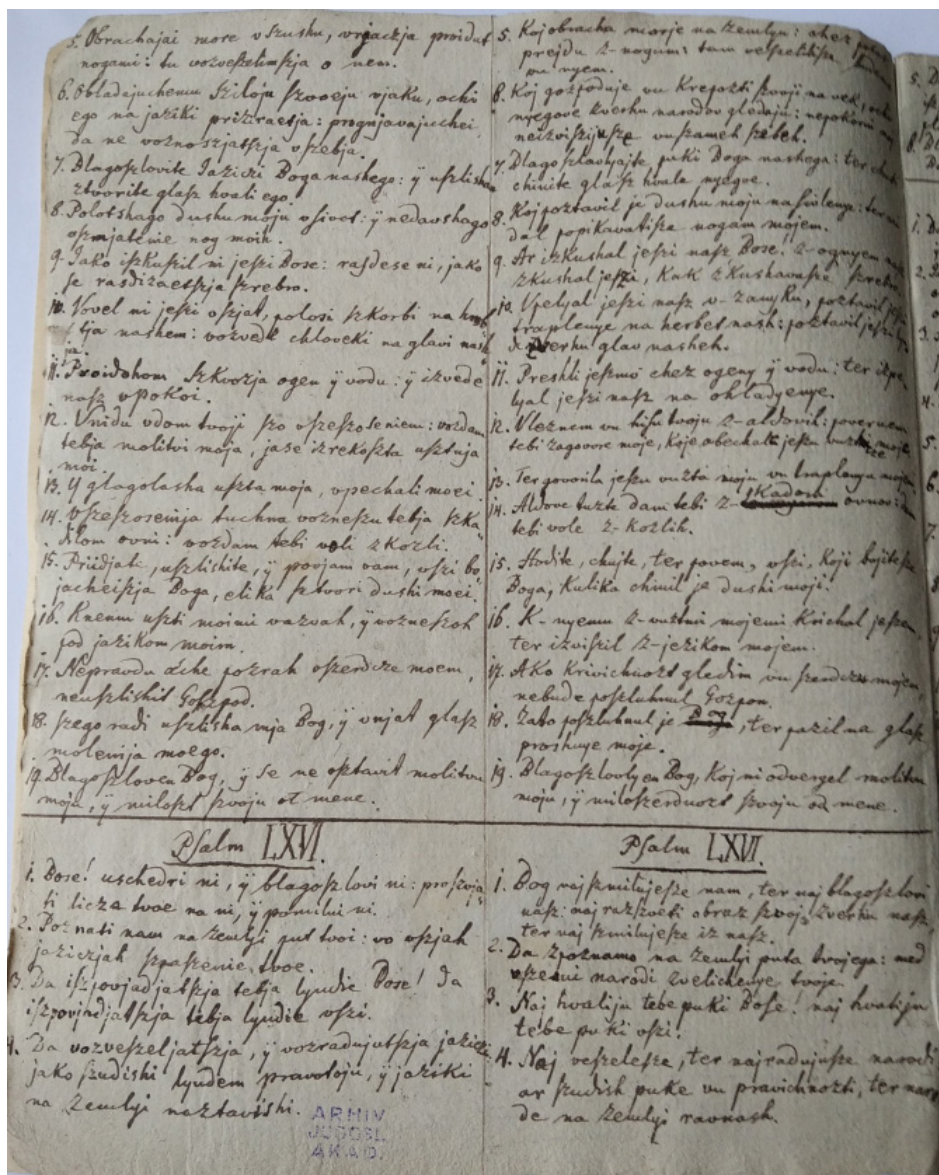 5. Obrachajai more v szushu, vrjaczja proidut
nogami: tu vozveszelimszja o nem.
6. Obladajuchemu Sziloju szvoeju vjaku, ochi
ego na jaziki prizraetsja: prognjavajuchei,
da ne voznoszjatszja vszebja.
7. Blagoszlovite Jazici Boga nashego: ÿ uszlisha
ztvorite glasz hvali ego.
8. Polotshago dushu moju v sivot: ÿ nedavshago
vo szmjatenie nog moih.
9. Jako iszkuszil ni jeszi Bose: rasdese ni, jako
se rasdizaetszja szrebro.
10. Vovel ni jeszi v szjat, polosi szkorbi na hreb
tja nashem: vozvede chloveki na glavi nash
ja.
11. Proidohom szkvozja ogen ÿ vodu: ÿ izvede
nasz v pokoi.
12. Vnidu v dom tvoji szo vszeszoseniem: vozdam
tebja molitvi moja, jase izrekoszta usztnja
moi.
13. Y glagolasha uszta moja, v pechali moei.
14. Vszeszosenija tuchna vozneszu tebja szka
dilom ovni: vozdam tebi voli z kozli.
15. Priidjate, uszlishite, ÿ povjam vam, vszi bo
jacheiszja Boga, elika sztvori dushi moei.
16. Knemu uszti moimi vazvah, ÿ vozneszoh
pod jazikom moim.
17. Nepravdu ache pozrah v szerdcze moem,
neuszlishit Goszpod.
18. szego radi uszlisha mja Bog, ÿ vnjat glasz
molenija moego.
19. Blagoszloven Bog, ÿ se ne osztavit molitvu
moja, ÿ miloszt szvoju ot mene.
Psalm LXVI.
1. Bose! uschedri ni, ÿ blagoszlovi ni: proszvja
ti licze tvoe na ni, ÿ pomilui ni.
2. Poznati nam na Zemlji put tvoi: vo vszjah
jazicjah szpaszenie tvoe.
3. Da iszpovjadjatszja tebja lyudie Bose! da
iszpovjadjatszja tebja lyudie vszi.
4. Da vozveszeljatszja, ÿ vozradujutszja jazici
jako szudishi lyudem pravotoju, ÿ jaziki
na Zemlyi naztavishi.
5. Koj obracha morje na Zemlyu: chez
prejdu z-nogum: tam veszelilisze
vu nyem.
6. Koj goszpoduje vu Krepozti szvoji na vek,
nyegove zverhu narodov gledaju:
neizvisziju sze vu szameh szebeh.
7. Blagoszlavlyajte, puki Boga nashega: ter
chinite glasz hvala nyegve.
8. Koj poztavil je dushu moju na sivlenye: ter ni
dal popikavatisze nogam mojem.
9. Ar izkushal jeszi nasz Bose. z-ognyem nasz
zkushal jeszi, Kak zkushavasze szrebro.
10. Vpelyal jeszi nasz v-zamku, poztavil jeszi
traplenye na herbet nash: poztavil jeszi
zverhu glav nasheh.
11. Preshli jeszmo chez ogeny ÿ vodu: ter zpe
lyal jeszi nasz na ohladyenye.
12. Vleznem vu hisu tvoju z-aldovil: povernem
tebi zagovore moje, Koje obechala jeszu vuzta moja.
13. Ter govorila jeszu vuzta moja vu traplenyu
14. Aldove tuzte dam tebi z-kadom ovnov:
tebi vole z-kozlih.
15. Hodite, chujte, ter povem, vszi, koji bojitesze
Boga, kulika chinil je dushi moji.
16. K-nyemu z-vuztmi mojemi krichal jeszem,
ter izviszil z-jezikom mojem.
17. Ako krivichnozt gledim vu szerdczu mojem
nebude poszluhnul Gozpon.
18. Zato poszluhnul je Bog, ter pazil na glasz
proshnye moje.
19. Blagoszlovlyen Bog, Koj ni odvergel molitvu
moju, ÿ miloszerdnozt szvoju od mene.
Psalm LXVI.
1. Bog naj szmilujesze nam, ter naj blagoszlovi
nasz: naj razszveti obraz szvoj zverhu nasz,
ter naj szmilujesze iz nasz.
2. Da zpoznamo na Zemlyi puta tvojega: med
vszemi narodi zvelichenye tvoje.
3. Naj hvaliju tebe puki Bose! naj hvaliju
tebe puki vszi.
4. Naj veszelesze, ter naj radujusze narodi
ar szudish puke vu pravichnozti, ter naro
de na Zemlyi ravnash.
ARHIV
JUGOSL.
AKAD.